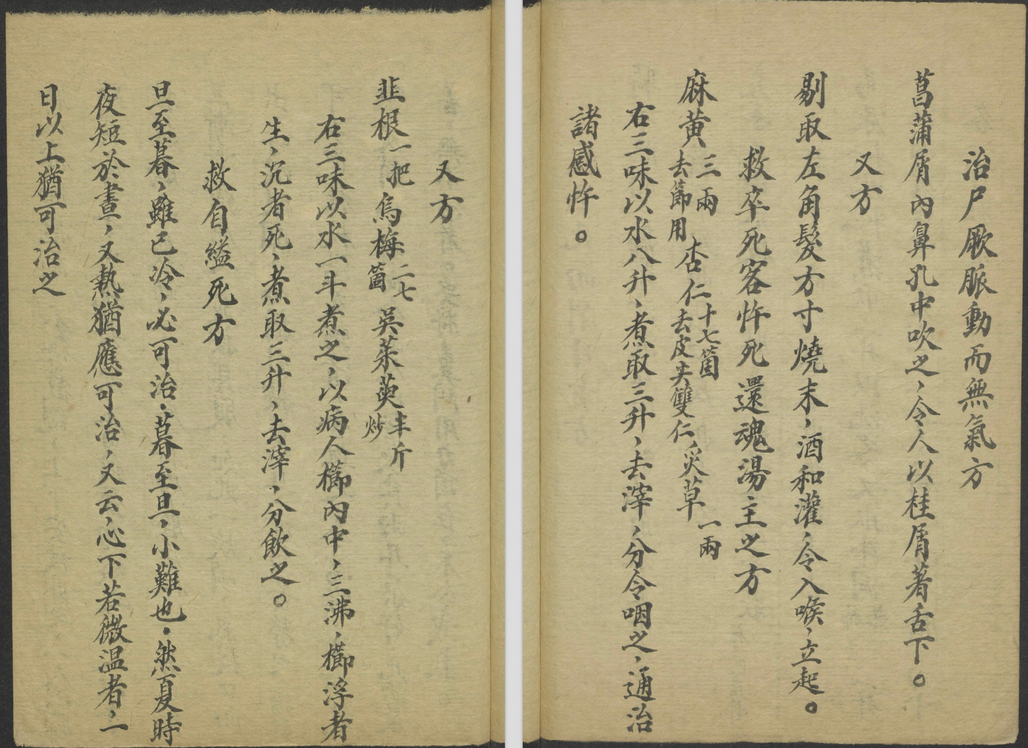 治尸厥脈動而無氣方
菖蒲屑內鼻孔中吹之、令人以桂屑著舌下。
又方
剔取左角髮方寸燒末、酒和灌、令入喉、立起。
救卒死客忤死還魂湯主之方
麻黃三兩去節用 杏仁十七箇去皮尖雙仁 炙草一兩
右三味以水八升、煮取三升、去滓、分令咽之、通治
諸感忤。
又方
韭根一把 烏梅二七箇 吳茱萸半斤炒
右三味以水一斗煮之、以病人櫛內中、三沸、櫛浮者
生、沉者死、煮取三升、去滓、分飲之。
救自縊死方
旦至暮、雖已冷、必可治、暮至旦、小難也、然夏時
夜短於晝、又熱、猶應可治、又云、心下若微温者、一
日以上猶可治之